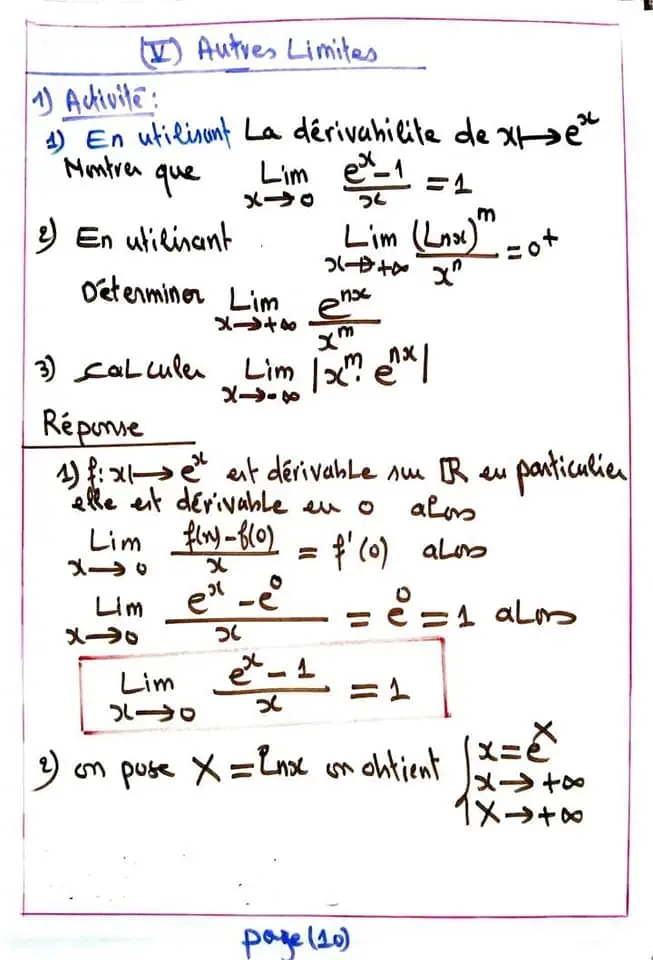 (V) Autres Limites
1) Activité :
1) En utilisant La dérivabilite de x↦e^x
Montrer que Lim_{x→0} (e^x - 1)/x = 1
2) En utilisant Lim_{x→+∞} (Lnx)^m / x^n = 0^+
Déterminer Lim_{x→+∞} e^{nx} / x^m
3) calculer Lim_{x→-∞} |x^m . e^{nx}|
Réponse
1) f: x↦e^x est dérivable sur ℝ en particulier
elle est dérivable en 0 alors
Lim_{x→0} (f(x) - f(0))/x = f'(0) alors
Lim_{x→0} (e^x - e^0)/x = e^0 = 1 alors
Lim_{x→0} (e^x - 1)/x = 1
2) on pose X = Lnx on obtient { x = e^X
x→+∞
X→+∞
page(10)